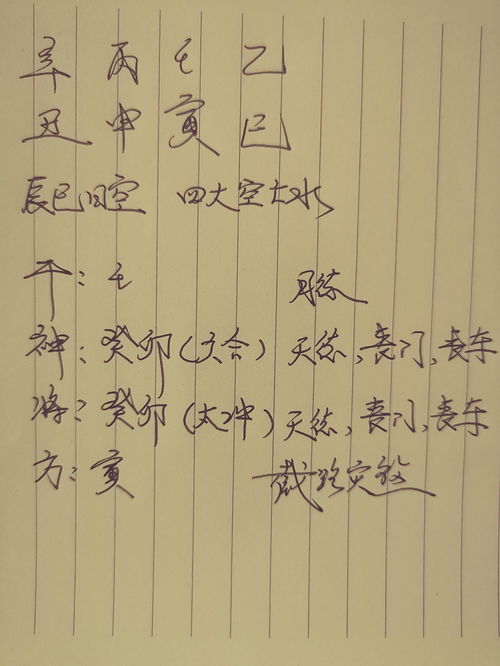 辛 丙 壬 乙
丑 申 寅 巳
辰巳日空 四大空亡水
干：壬 月练
神：癸卯（六合）天练，丧门，丧车
将：癸卯（太冲）天练，丧门，丧车
方：寅 截路灾煞